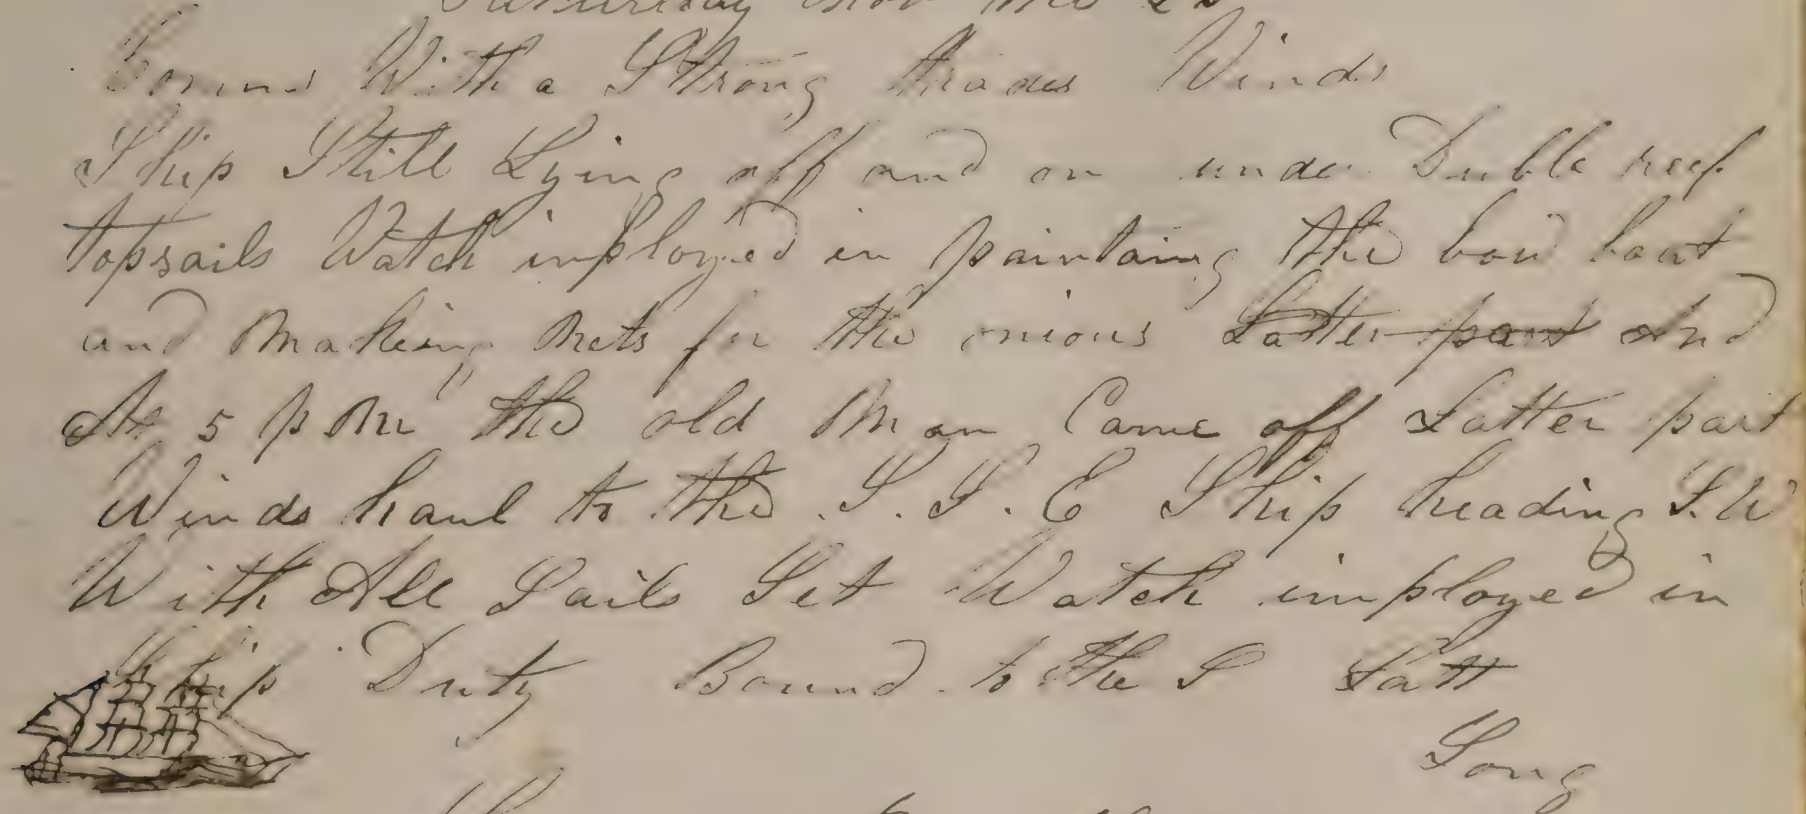 Saturday Nov the 25
Comms With a Strong trades Winds
Ship Still Lying off and on under Dubble reef
topsails Watch imployed in paintaing the bow boat
and Making Nets for the onions Latter part And
At 5 p M the old Man Came off Latter part
Winds haul to the S. S. E Ship heading S. W
With All Sails Set Watch imployed in
Ship Duty Bound to the S Latt
Long